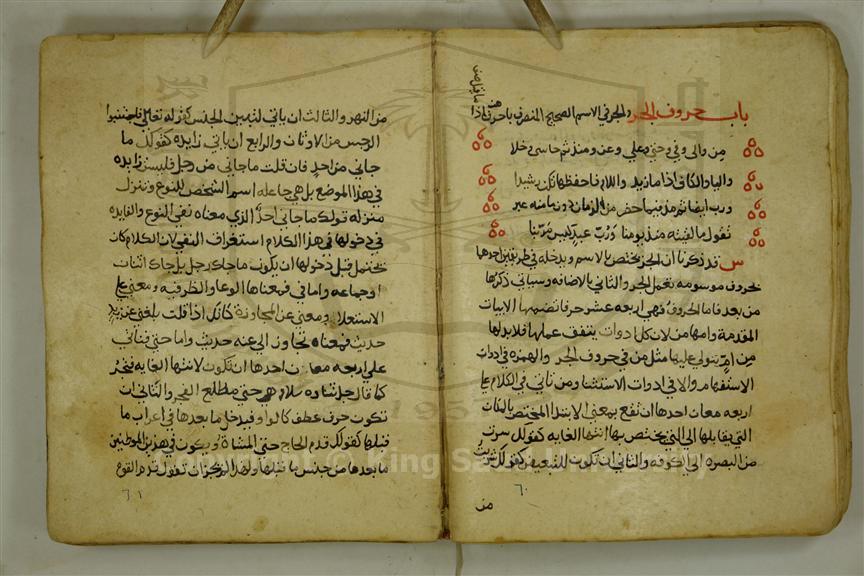 باب حروف الجر والجر في الاسم الصحيح المنصرف باحرف هن اذا ما قيل صف
من والى وفي وحتى وعلي وعن ومنذ ثم حاشى وخلا
والبا والكاف اذا ما زيد واللام فاحفظها تكن رشيدا
ورب ايضا ثم مذ فيما حضر من الزمان دون ما منه غبر
تقول ما لقيته مذ يومنا ورب عبد كيس مر بنا
س قد ذكرنا ان الجر يختص بالاسم ويدخله في طريقين احدهما
بحروف موسومه تعمل الجر والثاني بالاضافه وسياتي ذكرها
من بعد فاما الحروف فهي اربعه عشر حرفا تضمنها الابيات
المقدمة وامها من لان كل ادوات يتفق عملها فلا بد لها
من ام يتولي عليها مثل من في حروف الجر والهمزه في ادوات
الاستفهام والا في ادوات الاستثنا ومن تاتي في الكلام علي
اربعه معان احدها ان تقع بمعنى الابتدا المختص بالمكان
التي يقابلها الى التي يختص بها انتها الغايه كقولك سرت
من البصره الى الكوفه والثاني ان تكون للتبعيض كقولك شربت
من
٦٠
من النهر والثالث ان ياتي لتبيين الجنس كقوله تعالى فاجتنبوا
الرجس من الاوثان والرابع ان ياتي زايده كقولك ما
جاني من احد فان قلت ما جاني من رجل فليست زايده
في هذا الموضع بل هي جاعله اسم الشخص للنوع وتتنزل
منزله قولك ما جاني احد الذي معناه نفي النوع والفايده
في دخولها في هذا الكلام استغراق النفي لان الكلام كان
يحتمل قبل دخولها ان يكون ما جاك رجل بل جاك اثنان
او جماعه واما في فمعناها الوعا والظرفيه ومعنى علي
الاستعلا ومعنى عن المجاوزة كانك اذا قلت بلغني عن زيد
حديث فمعناه تجاوز الي عنه حديث واما حتى فتاتي
علي اربعه معان احدها ان تكون لانتها الغايه فتجر
كما قال جل ثناه سلام هي حتى مطلع الفجر والثاني ان
تكون حرف عطف كالواو فيدخل ما بعدها في اعراب ما
قبلها كقولك قدم الحاج حتى المشاة ويكون في هذين الموطنين
ما بعدها من جنس ما قبلها تقول قدم القوم
٦١
Copyright © King Saud University
1957